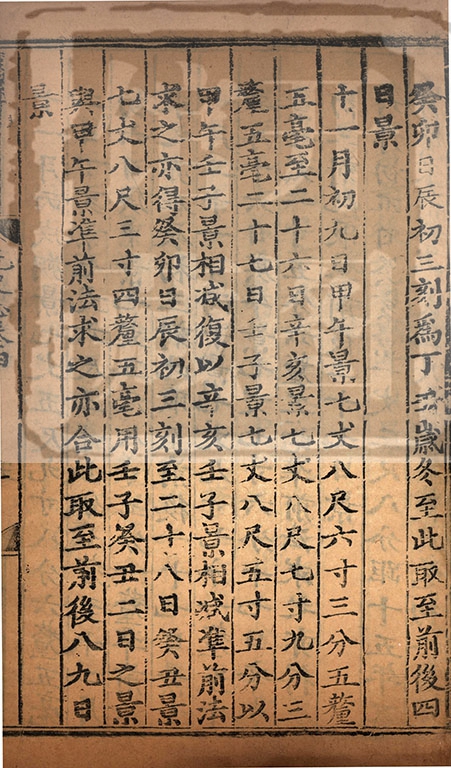 癸卯日辰初三刻爲丁丑歲冬至此取至前後四
日景
十一月初九日甲午景七丈八尺六寸三分五釐
五毫至二十六日辛亥景七丈八尺七寸九分三
釐五毫二十七日壬子景七丈八尺五寸五分以
甲午壬子景相减復以辛亥壬子景相减凖前法
求之亦得癸卯日辰初三刻至二十八日癸丑景
七丈八尺三寸四釐五毫用壬子癸丑二日之景
與甲午景凖前法求之亦合此取至前後八九日
景